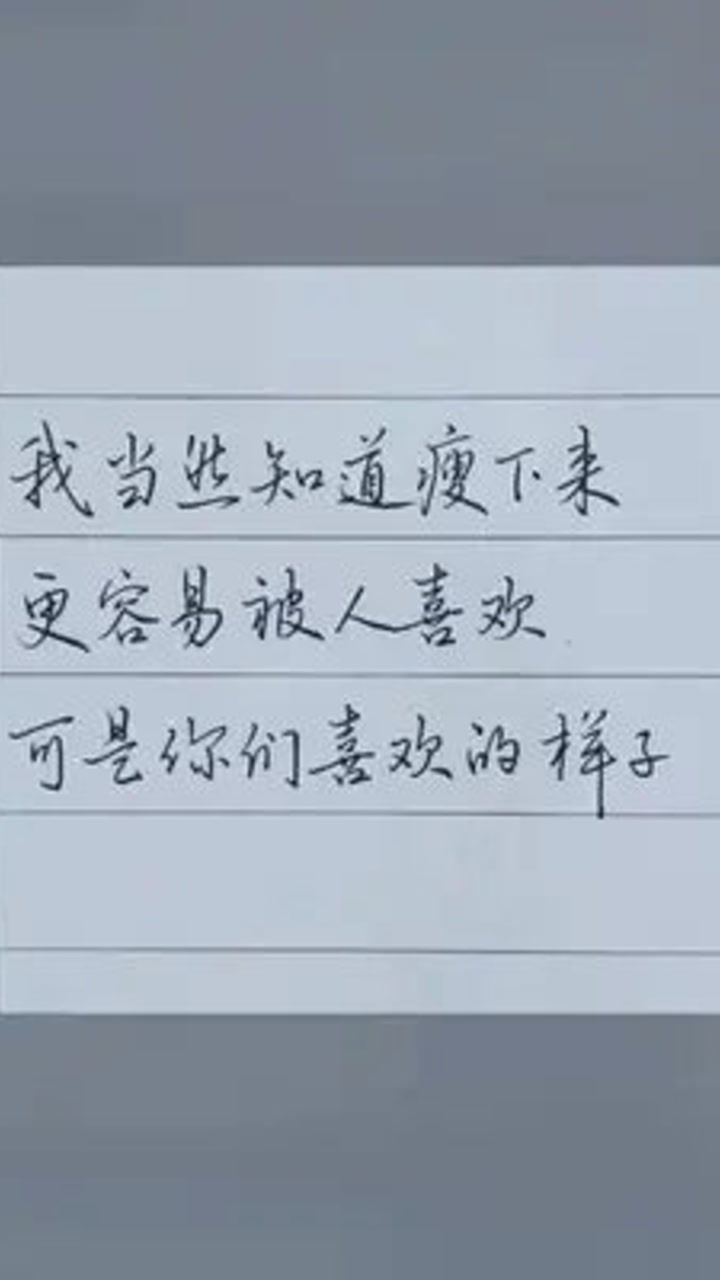 我当然知道瘦下来
更容易被人喜欢
可是你们喜欢的样子